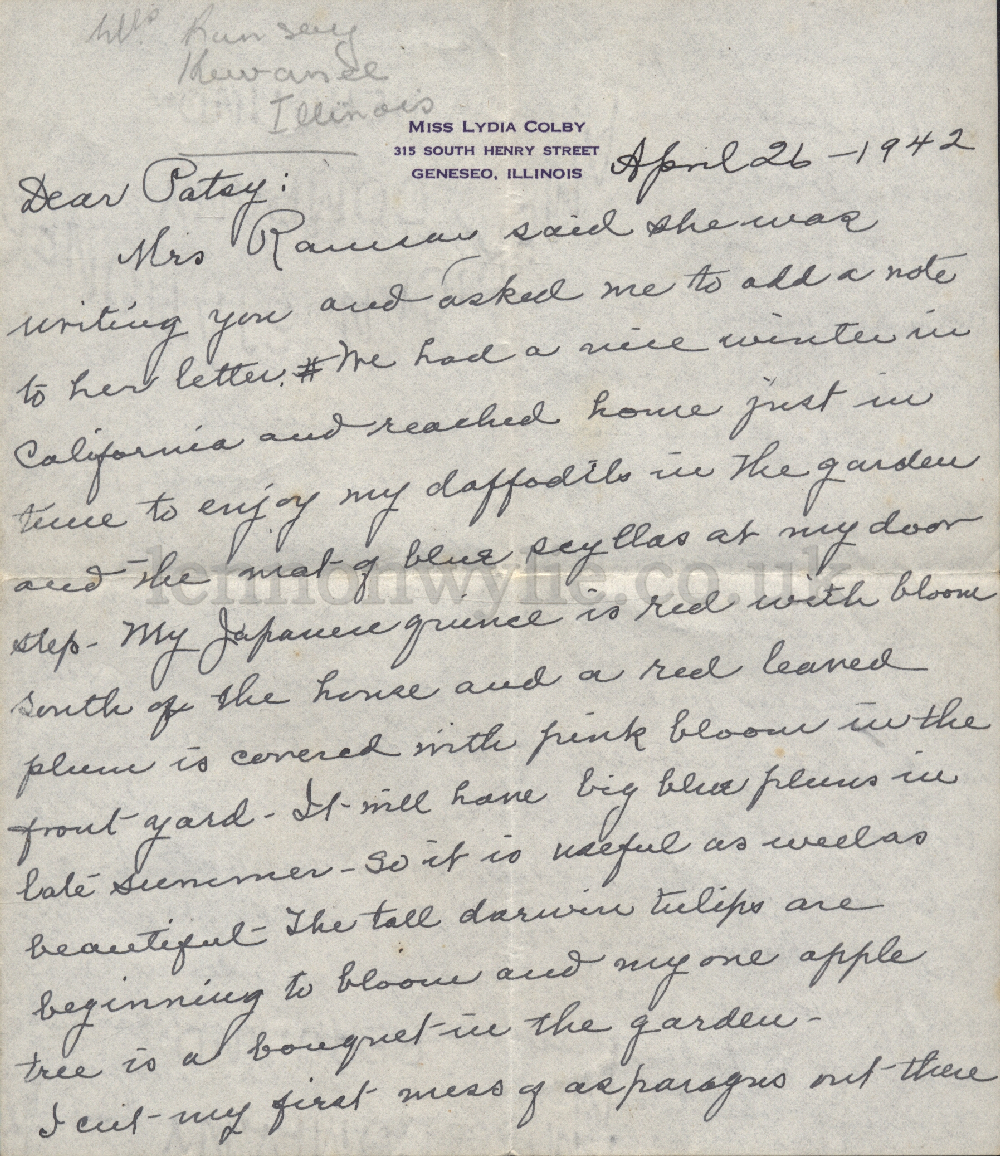 Mrs Ramsey
Kewanee
Illinois
MISS LYDIA COLBY
315 SOUTH HENRY STREET
GENESEO, ILLINOIS
April 26 - 1942
Dear Patsy:
Mrs Ramsay said she was
writing you and asked me to add a note
to her letter. # We had a nice winter in
California and reached home just in
time to enjoy my daffodils in the garden
and the mat of blue scyllas at my door
step - My Japanese quince is red with bloom
south of the house and a red leaved
plum is covered with pink bloom in the
front yard - It will have big blue plums in
late summer - So it is useful as well as
beautiful - The tall darwin tulips are
beginning to bloom and my one apple
tree is a bouquet in the garden -
I cut my first mess of asparagus out there
lennonwylie.co.uk